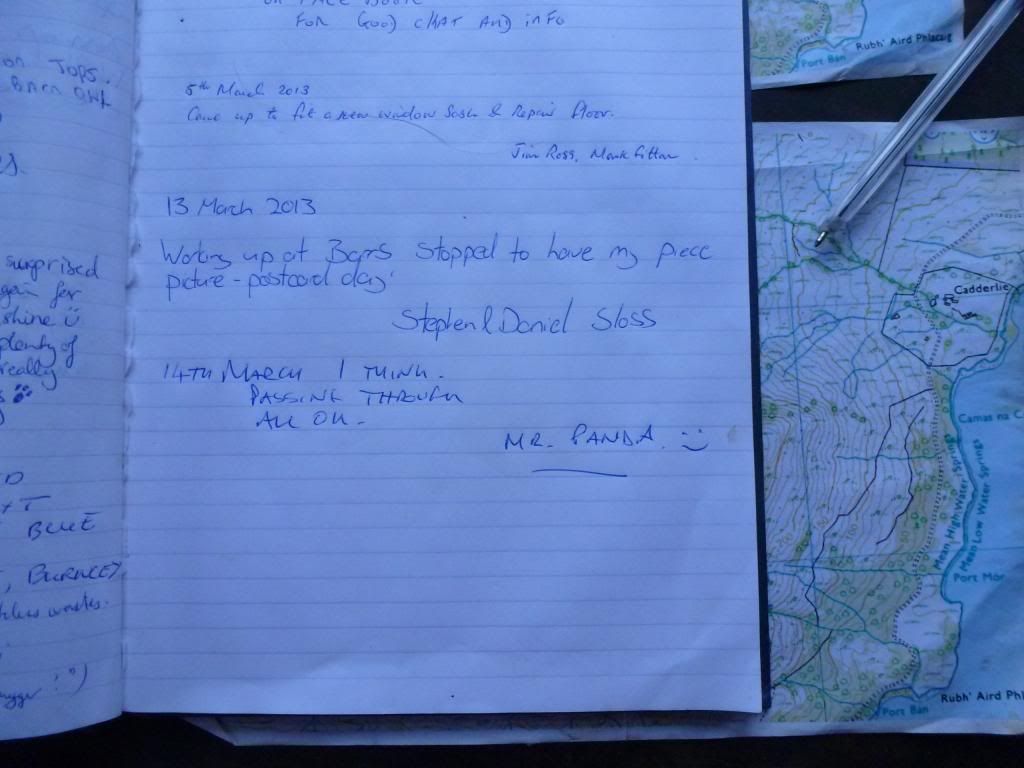 FOR GOOD CHAT AND INFO
5th March 2013
Came up to fit a new window sash & Repair floor.
Jim Ross, Mark Fitton
13 March 2013
Working up at Barrs stopped to have my piece
picture-postcard day'
Stephen & Daniel Sloss
14TH MARCH I THINK.
PASSING THROUGH
ALL OK.
MR. PANDA. :)
ON TOPS.
BARN OWL
surprised
shine
plenty of
really
BLUE
BURNLEY
Port Ban
Rubh' Aird Phlacaig
Cadderlie
Camas na C
Mean High Water Springs
Mean Low Water Springs
Port Mor
Rubh' Aird Phl
Port Ban